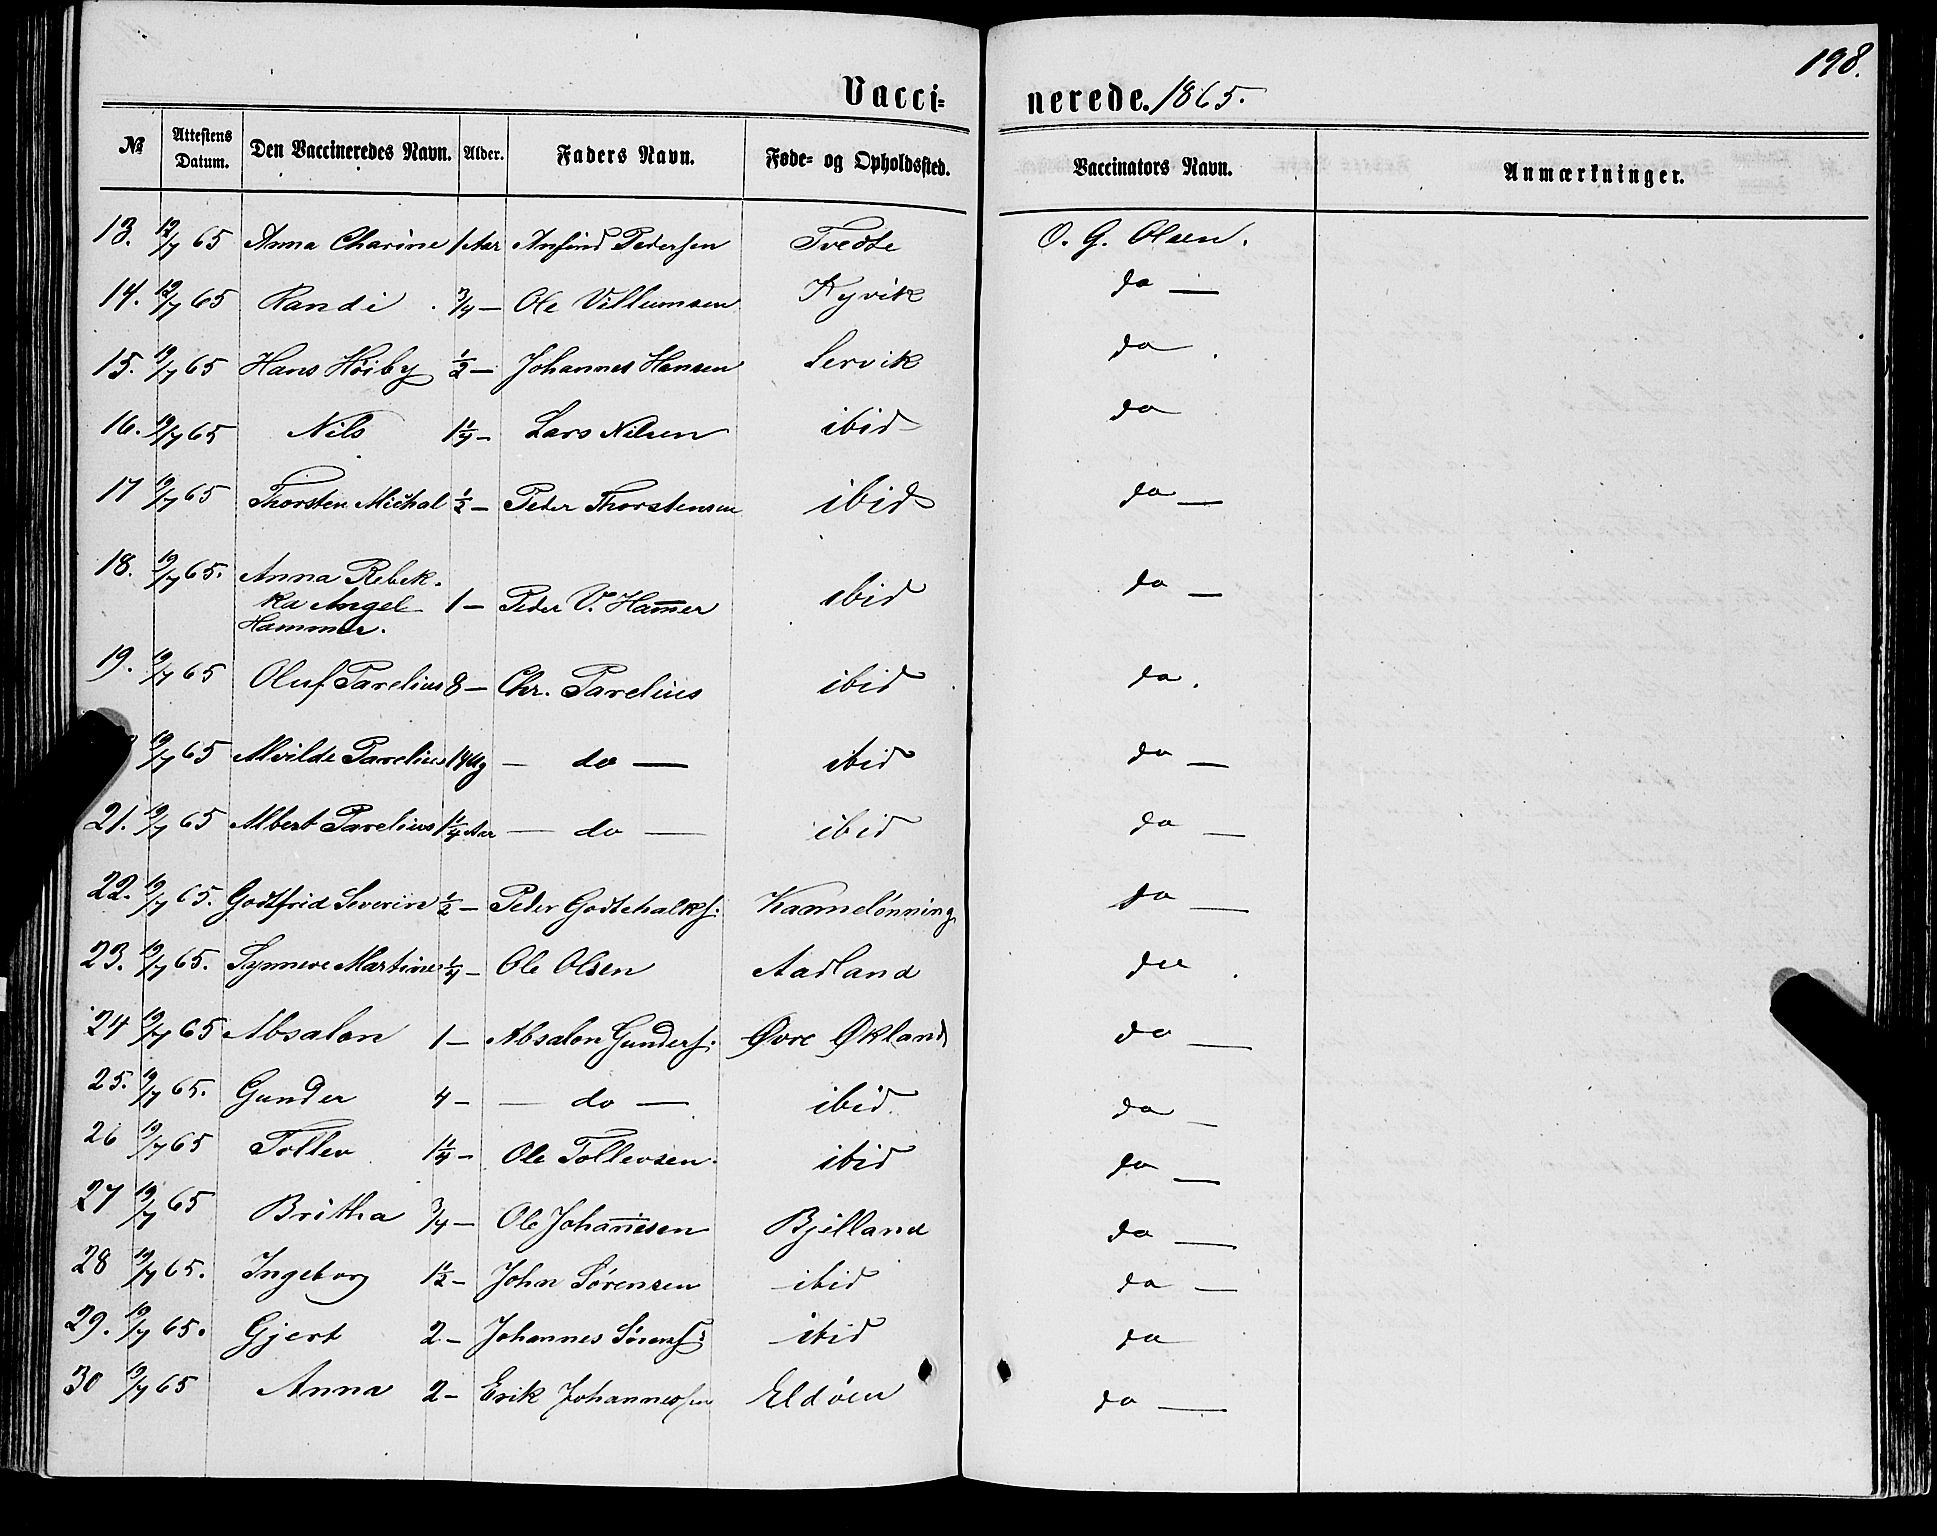 198.
Vaccinerede. 1865.
№ Attestens Datum. Den Vaccineredes Navn. Alder. Faders Navn. Føde- og Opholdssted. Vaccinators Navn. Anmærkninger.
13. 12/7 65 Anna Charine 1 Aar Anfind Pedersen Tvedte O. G. Olsen.
14. 12/7 65 Randi 3/4 — Ole Villumsen Kyvik do —
15. 19/7 65 Hans Høiby 1/2 — Johannes Hansen Lervik do
16. 19/7 65 Nils 1 1/4 — Lars Nilsen ibid do
17 19/7 65 Thorsten Michal 1/2 — Peder Thorstensen ibid do —
18. 19/7 65. Anna Rebek-
ka Angel 1 — Peder V. Ham̅er ibid do —
Hammer.
19. 19/7 65 Oluf Parelius 8 — Chr. Parelius ibid do.
19/7 65 Alvilde Parelius — do — ibid do —
21. 19/7 65 Albert Parelius 1 1/4 Aar — do — ibid do —
22. 19/7 65. Godtfrid Severin 1/2 — Peder Godtchalks: do —
23. 19/7 65. Synneve Martine 1/4 — Ole Olsen Aadland do
24 19/7 65 Absalon 1 — Absalon Gunders: Øvre Økland do —
25. 19/7 65. Gunder 4 — — do — ibid. do —
26 19/7 65 Tollev 1 1/4 — Ole Tollevsen ibid do —
27 19/7 65 Britha 3/4 — Ole Johan̅esen Bjelland do —
28 19/7 65. Ingeborg 1 1/2 — John Sørensen ibid do —
29. 19/7 65. Gjert 2 — Johannes Sørens: ibid do
30 19/7 65 Anna 2 — Erik Johannessen Eldøen do —